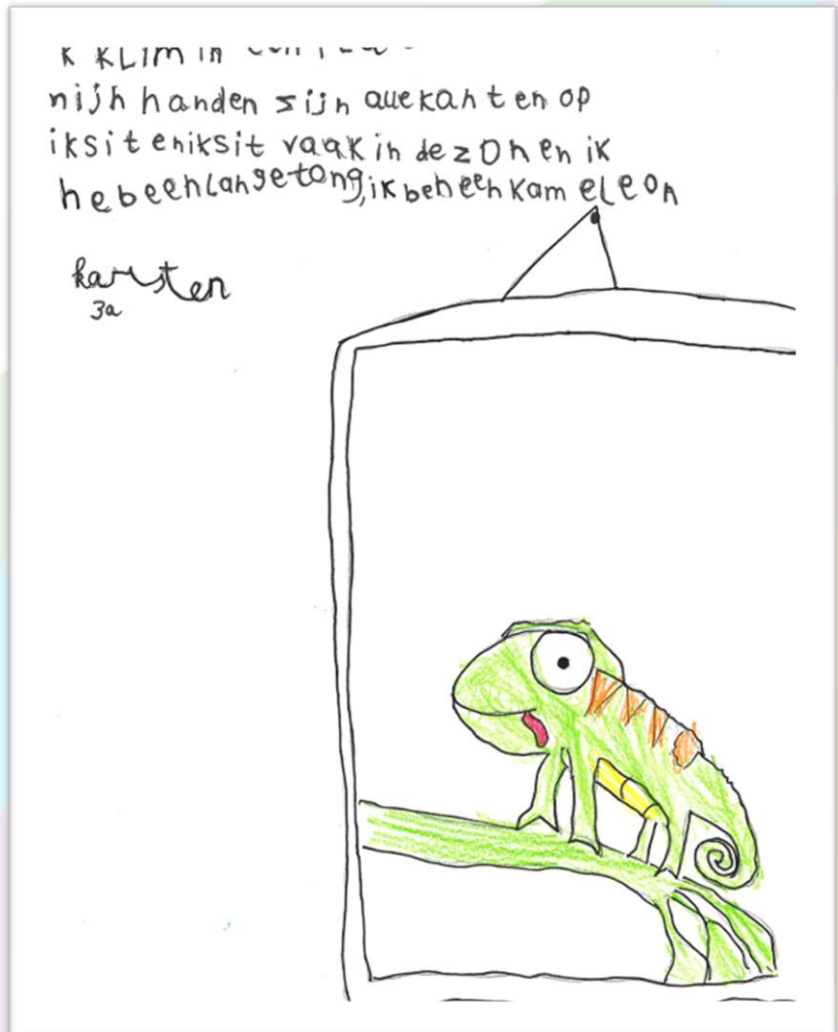 k KLIM in
nijn handen sijn alle kanten op
iksit eniksit vaak in de zon en ik
hebeenlangetong,ik beneen kameleon
karsten
3a